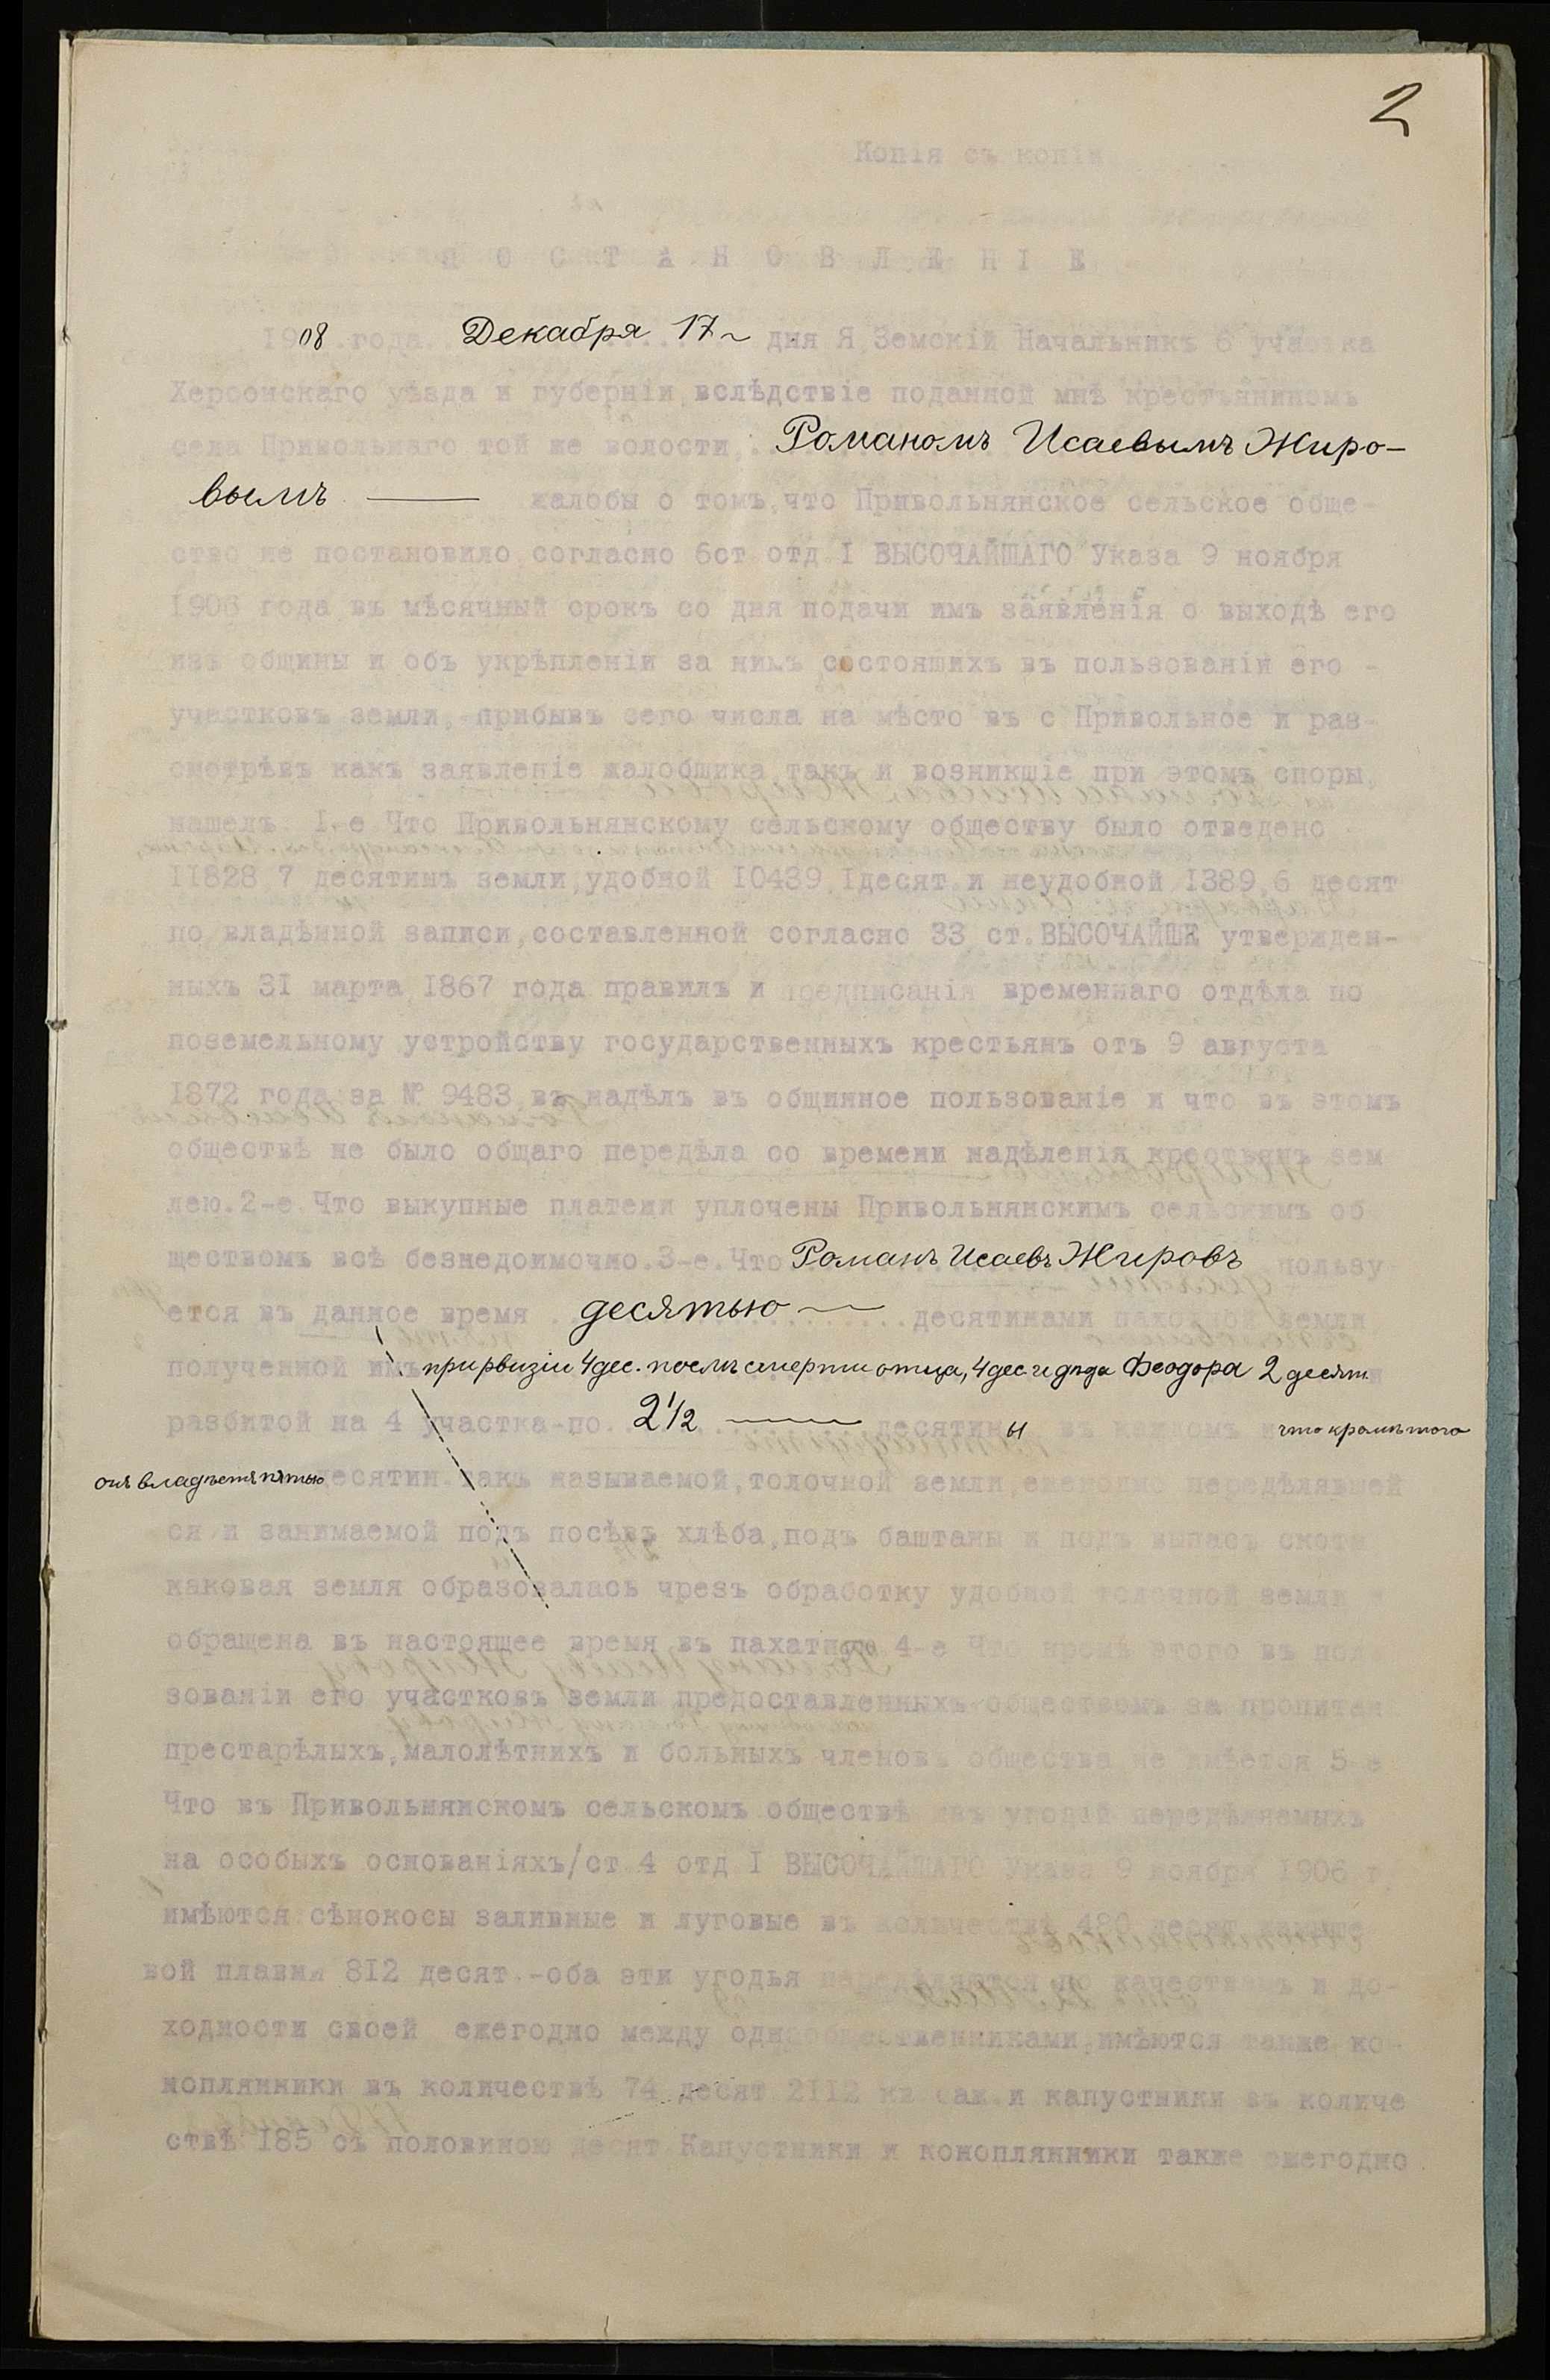 2
Копія съ копіи
П О С Т А Н О В Л Е Н І Е
1908 года Декабря 17 дня Я Земскій Начальникъ 6 участка
Херсонскаго уѣзда и губерніи, вслѣдствіе поданной мнѣ крестьяниномъ
села Привольнаго той же волости, Романомъ Исаевымъ Жиро-
вымъ —— жалобы о томъ, что Привольнянское сельское обще-
ство не постановило согласно 6ст отд I ВЫСОЧАЙШАГО Указа 9 ноября
1906 года въ мѣсячный срокъ со дня подачи имъ заявленія о выходѣ его
изъ общины и объ укрѣпленіи за нимъ состоящихъ въ пользованіи его -
участковъ земли,-прибывъ сего числа на мѣсто въ с Привольное и раз-
смотрѣвъ какъ заявленіе жалобщика, такъ и возникшіе при этомъ споры,
нашелъ: I-е Что Привольнянскому сельскому обществу было отведено
11828,7 десятинъ земли, удобной 10439,1десят. и неудобной 1389,6 десят
по владѣнной записи, составленной согласно 33 ст. ВЫСОЧАЙШЕ утвержден-
ныхъ 31 марта 1867 года правилъ и предписанія временнаго отдѣла по
поземельному устройству государственныхъ крестьянъ отъ 9 августа
1872 года за № 9483 въ надѣлъ въ общинное пользованіе и что въ этомъ
обществѣ не было общаго передѣла со времени надѣленія крестьянъ зем
лею. 2-е Что выкупные платежи уплочены Привольнянскимъ сельскимъ об
ществомъ всѣ безнедоимочно. 3-е. Что Романъ Исаевъ Жировъ пользу
ется въ данное время десятью —— десятинами пахотной земли
полученной имъ при рвизіи 4 дес. послѣ смерти отца, 4 дес и дѣда Феодора 2 десят.
разбитой на 4 участка-по 2½ —— десятины въ каждомъ и что кромѣ того
онъ владѣетъ пятью десятин. такъ называемой, толочной земли, ежегодно передѣлявшей
ся и занимаемой подъ посѣвъ хлѣба, подъ баштаны и подъ выпасъ скота
каковая земля образовалась чрезъ обработку удобной толочной земли и
обращена въ настоящее время въ пахатную 4-е Что кромѣ этого въ пол
зованіи его участковъ земли предоставленныхъ обществомъ за пропитан
престарѣлыхъ, малолѣтнихъ и больныхъ членовъ общества не имѣется 5-е
Что въ Привольнянскомъ сельскомъ обществѣ изъ угодій передѣляемыхъ
на особыхъ основаніяхъ/ст 4 отд I ВЫСОЧАЙШАГО Указа 9 ноября 1906 г.
имѣются сѣнокосы заливные и луговые въ количествѣ 480 десят камыше
вой плавни 812 десят.-оба эти угодья передѣляются по качествамъ и до-
ходности своей ежегодно между однообщественниками, имѣются также ко-
ноплянники въ количествѣ 74 десят 2112 кв саж. и капустники въ количе
ствѣ 185 съ половиною десят Капустники и коноплянники также ежегодно